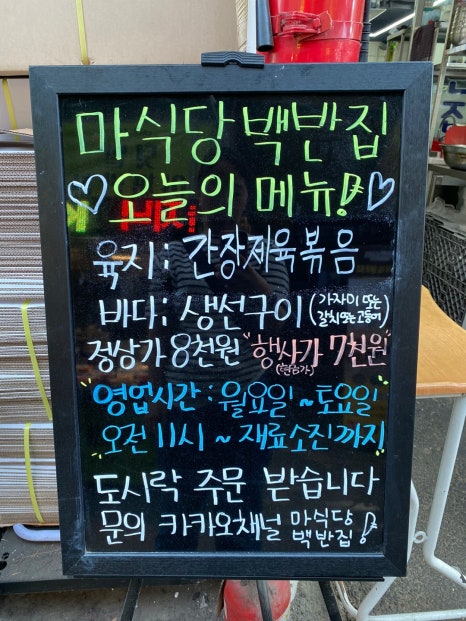 마식당 백반집
오늘의 메뉴!
육지: 간장제육볶음
바다: 생선구이 (가자미 또는 갈치 또는 고등어)
정상가 8천원 "행사가 7천원"
(현금가)
영업시간: 월요일~토요일
오전 11시 ~ 재료소진까지
도시락 주문 받습니다
문의 카카오채널 마식당 백반집!